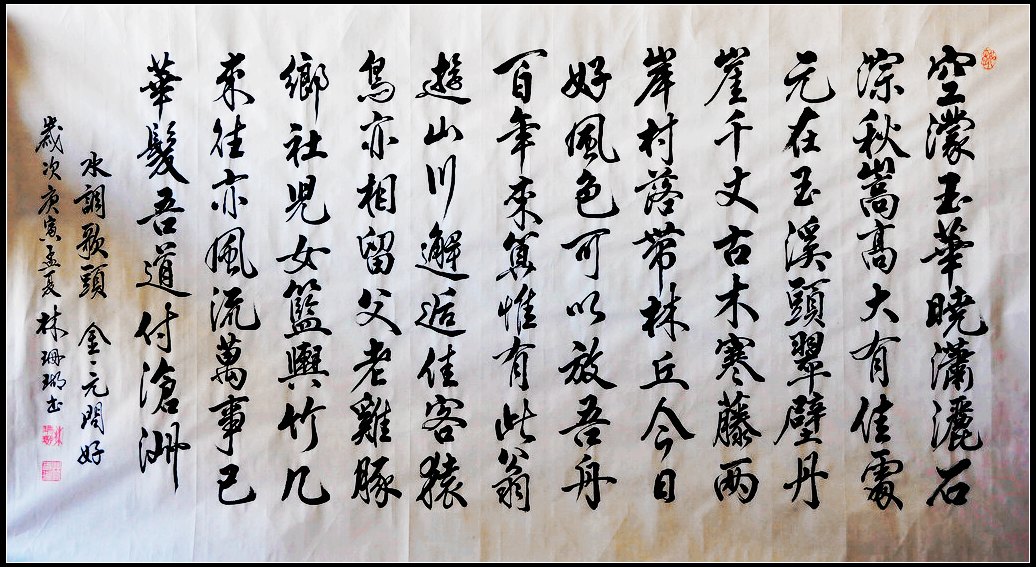 空濛玉華曉瀟灑石
淙秋嵩高大有佳處
元在玉溪頭翠壁丹
崖千丈古木寒藤兩
岸村落帶林丘今日
好風色可以放吾舟
百年來算惟有此翁
遊山川邂逅佳客猿
鳥亦相留父老雞豚
鄉社兒女籃輿竹几
來往亦風流萬事已
華髮吾道付滄洲
水調歌頭 金 元問好
歲次庚寅孟夏 林珊瑚書